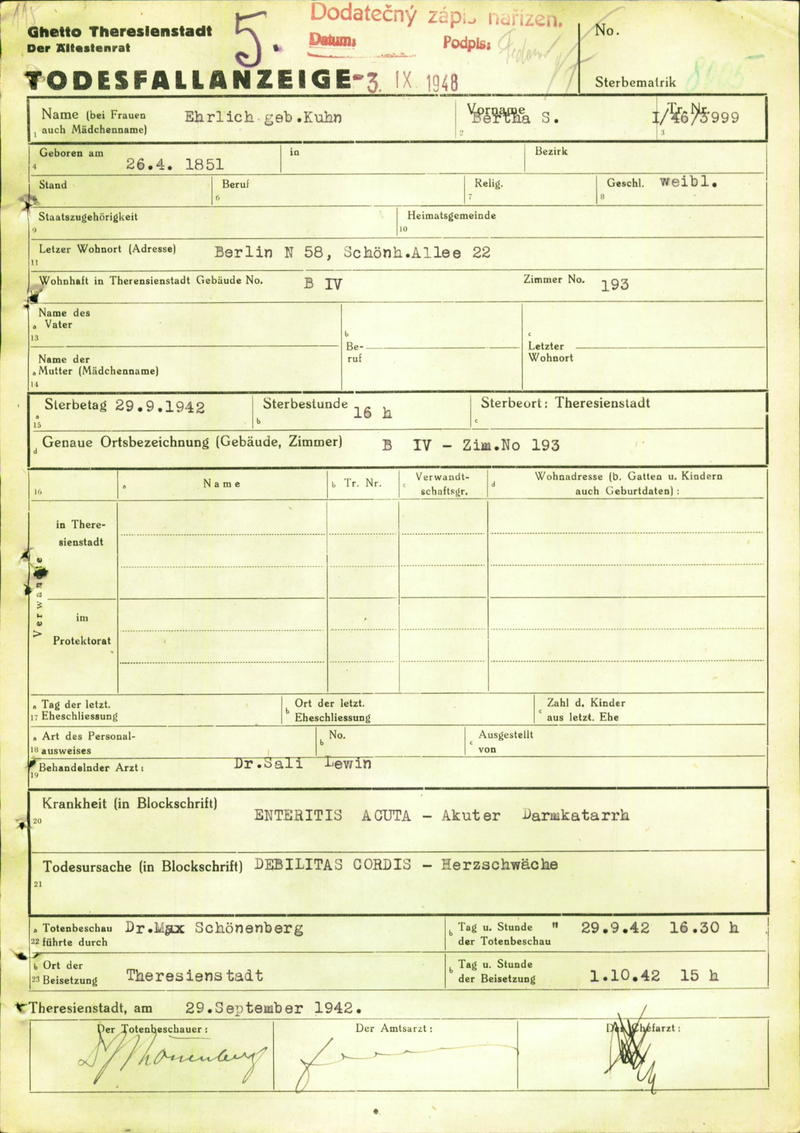 Ghetto Theresienstadt
Der Ältestenrat
5.
Dodatečný zápis nařízen.
Datum:
Podpis:
No.
TODESFALLANZEIGE
-3. IX 1948
Sterbematrik 8005
Name (bei Frauen auch Mädchenname) Ehrlich geb.Kuhn
1
Vorname Bertha S.
2
Tr. Nr. I/46/3999
3
Geboren am 26.4. 1851
4
in
Bezirk
Stand
Beruf
6
Relig.
7
Geschl. weibl.
8
Staatszugehörigkeit
9
Heimatsgemeinde
10
Letzer Wohnort (Adresse) Berlin N 58, Schönh.Allee 22
11
Wohnhaft in Therensienstadt Gebäude No. B IV
Zimmer No. 193
Name des
a Vater
13
b
Be-
ruf
c
Letzter
Wohnort
Name der
a Mutter (Mädchenname)
14
Sterbetag 29.9.1942
a
15
Sterbestunde 16 h
b
Sterbeort: Theresienstadt
c
d Genaue Ortsbezeichnung (Gebäude, Zimmer) B IV - Zim.No 193
16
a Name
b Tr. Nr.
c Verwandt-
schaftsgr.
d Wohnadresse (b. Gatten u. Kindern
auch Geburtdaten) :
Verwandte
in There-
sienstadt
im
Protektorat
a Tag der letzt.
17 Eheschliessung
b Ort der letzt.
Eheschliessung
c Zahl d. Kinder
aus letzt. Ehe
a Art des Personal-
18 ausweises
b No.
c Ausgestellt
von
Behandelnder Arzt: Dr.Sali Lewin
19
Krankheit (in Blockschrift) ENTERITIS ACUTA - Akuter Darmkatarrh
20
Todesursache (in Blockschrift) DEBILITAS CORDIS - Herzschwäche
21
a Totenbeschau Dr.Max Schönenberg
22 führte durch
b Tag u. Stunde " 29.9.42 16.30 h
der Totenbeschau
b Ort der
23 Beisetzung Theresienstadt
b Tag u. Stunde
der Beisetzung 1.10.42 15 h
Theresienstadt, am 29.September 1942.
Der Totenbeschauer:
Dr Schönenberg
Der Amtsarzt:
Der Chefarzt: